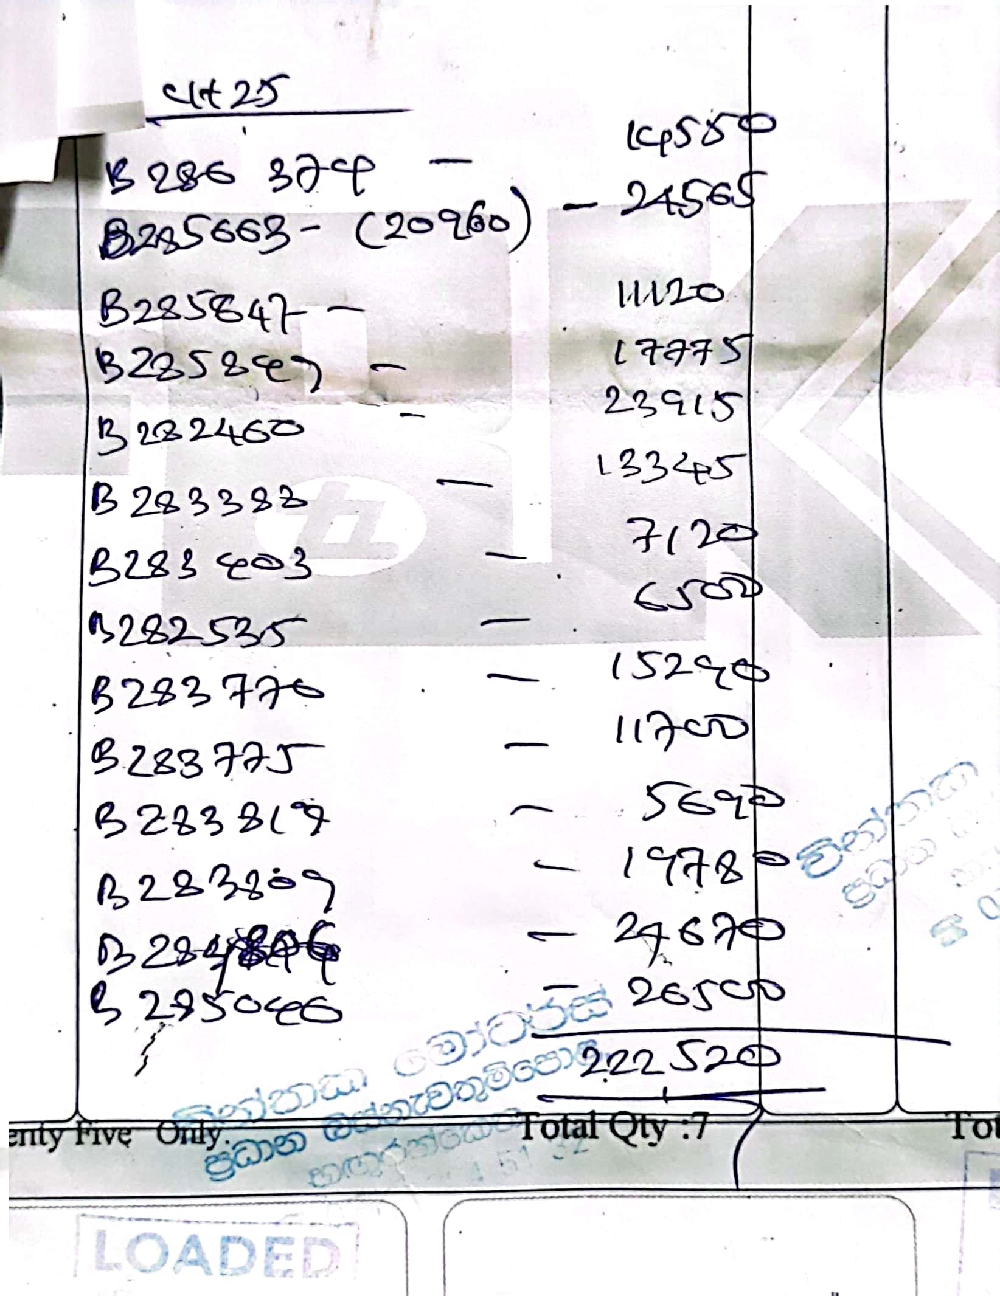 B286 374 — 14550
B285663 - (20960) — 24565
B285847 - 11120
B285847 - 17775
B282460 - 23915
B283383 — 13345
B283403 — 7120
B282535 — 6500
B283770 — 15290
B283775 — 11700
B283819 — 5690
B283809 — 19780
— 24670
B285046 — 26500
222520
චින්තක මෝටර්ස්
ප්‍රධාන
enty Five Only. Total Qty :7
LOADED